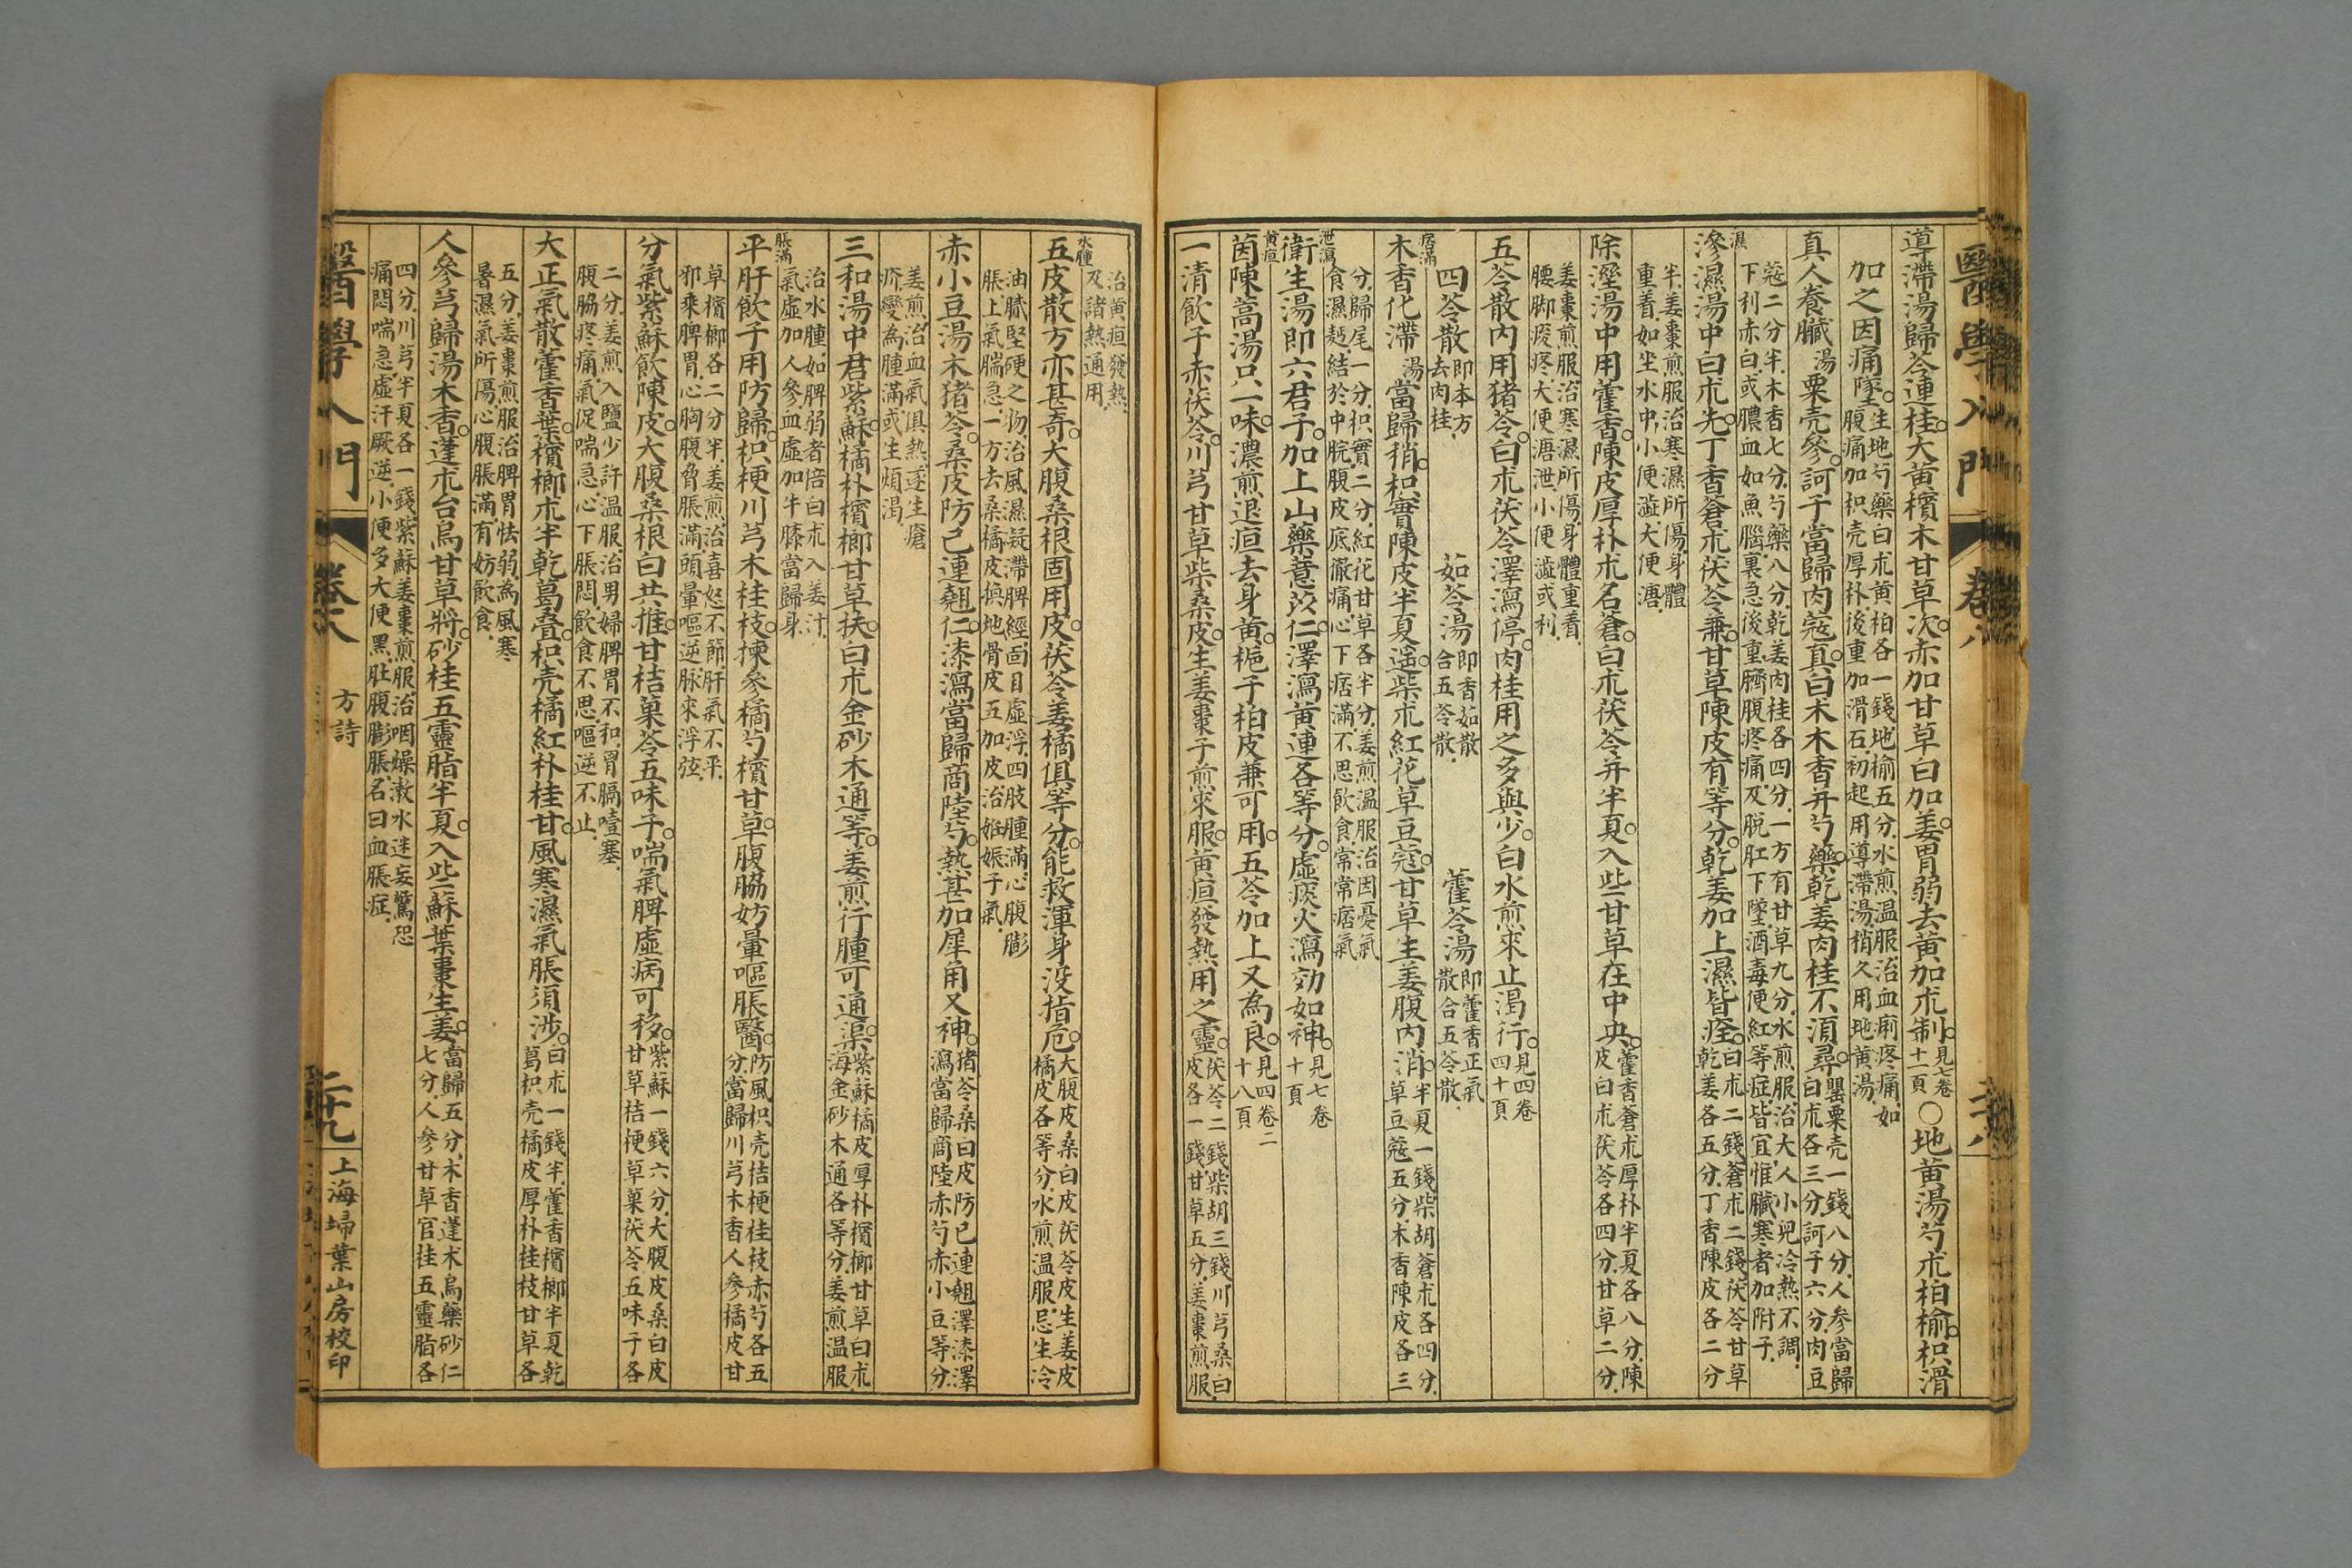 醫學入門
卷六
導滯湯歸芩連桂大黃檳木甘草次赤加甘草白加姜胃弱去黃加朮制見七卷十一頁○地黃湯芍朮柏榆枳滑
加之因痛墜生地芍藥白朮黃柏各一錢地榆五分水煎溫服治血痢疼痛如
腹痛加枳壳厚朴後重加滑石初起用導滯湯稍久用地黃湯
真人養臟湯粟壳參訶子當歸肉蔻真白木木香并芍藥乾姜肉桂不湏尋罌粟壳一錢八分人參當歸
白朮各三分訶子六分肉豆
蔻二分半木香七分芍藥八分乾姜肉桂各四分一方有甘草九分水煎服治大人小兒冷熱不調
下利赤白或膿血如魚腦裏急後重臍腹疼痛及脫肛下墜酒毒便紅等症皆宜惟臟寒者加附子
濕
滲濕湯中白朮先丁香蒼朮茯苓兼甘草陳皮有等分乾姜加上濕皆痊白朮二錢蒼朮二錢茯苓甘草
乾姜各五分丁香陳皮各二分
半姜棗煎服治寒濕所傷身體
重着如坐水中小便澁大便溏
除溼湯中用藿香陳皮厚朴朮名蒼白朮茯苓并半夏入些甘草在中央藿香蒼朮厚朴半夏各八分陳
皮白朮茯苓各四分甘草二分
姜棗煎服治寒濕所傷身體重着
腰脚痠疼大便溏泄小便澁或利
五苓散內用猪苓白朮茯苓澤瀉停肉桂用之多與少白水煎來止渴行見四卷
四十頁
四苓散即本方
去肉桂
茹苓湯即香茹散
合五苓散
藿苓湯即藿香正氣
散合五苓散
痞滿
木香化滯湯當歸稍枳實陳皮半夏遥柴朮紅花草豆蔻甘草生姜腹內消半夏一錢柴胡蒼朮各四分
草豆蔻五分木香陳皮各三
分歸尾一分枳實二分紅花甘草各半分姜煎溫服治因憂氣
食濕麪結於中脘腹皮底微痛心下痞滿不思飲食常常痞氣
泄瀉
衛生湯即六君子加上山藥薏苡仁澤瀉黃連各等分虛痰火瀉効如神見七卷
十頁
黃疸
茵陳蒿湯只一味濃煎退疸去身黃梔子柏皮兼可用五苓加上又為良見四卷二
十八頁
一清飲子赤茯苓川芎甘草柴桑皮生姜棗子煎來服黃疸發熱用之靈茯苓二錢柴胡三錢川芎桑白
皮各一錢甘草五分姜棗煎服
治黃疸發熱
及諸熱通用
水腫
五皮散方亦甚奇大腹桑根固用皮茯苓姜橘俱等分能救渾身没指危大腹皮桑白皮茯苓皮生姜皮
橘皮各等分水煎溫服忌生冷
油膩堅硬之物治風濕凝滯脾經面目虛浮四肢腫滿心腹膨
脹上氣腨急一方去桑橘皮換地骨皮五加皮治姙娠子氣
赤小豆湯木猪苓桑皮防已連翹仁漆瀉當歸商陸芍熱甚加犀角又神猪苓桑白皮防已連翹澤漆澤
瀉當歸商陸赤芍赤小豆等分
姜煎治血氣俱熱遂生瘡
疥變為腫滿或生煩渴
三和湯中君紫蘇橘朴檳榔甘草扶白朮金砂木通等姜煎行腫可通渠紫蘇橘皮厚朴檳榔甘草白朮
海金砂木通各等分姜煎溫服
治水腫如脾弱者倍白朮入姜汁
氣虛加人參血虛加牛膝當歸身
脹滿
平肝飲子用防歸枳梗川芎木桂枝揀參橘芍檳甘草腹脇妨暈嘔脹醫防風枳壳桔梗桂枝赤芍各五
分當歸川芎木香人參橘皮甘
草檳榔各二分半姜煎治喜怒不節肝氣不平
邪乘脾胃心胸腹脅脹滿頭暈嘔逆脉來浮弦
分氣紫蘇飲陳皮大腹桑根白共推甘桔菓苓五味子喘氣脾虛病可移紫蘇一錢六分大腹皮桑白皮
甘草桔梗草菓茯苓五味子各
二分姜煎入鹽少許溫服治男婦脾胃不和胃膈噎塞
腹脇疼痛氣促喘急心下脹悶飲食不思嘔逆不止
大正氣散藿香葉檳榔朮半乾葛叠枳壳橘紅朴桂甘風寒濕氣脹須涉白朮一錢半藿香檳榔半夏乾
葛枳壳橘皮厚朴桂枝甘草各
五分姜棗煎服治脾胃怯弱為風寒
暑濕氣所傷心腹脹滿有妨飲食
人參芎歸湯木香蓬朮台烏甘草將砂桂五靈脂半夏入些蘇葉棗生姜當歸五分木香蓬朮烏藥砂仁
七分人參甘草官桂五靈脂各
四分川芎半夏各一錢紫蘇姜棗煎服治咽燥漱水迷妄驚恐
痛悶喘急虛汗厥逆小便多大便黑肚腹膨脹名曰血脹症
醫學入門
卷六
方詩
二十九
上海埽葉山房校印